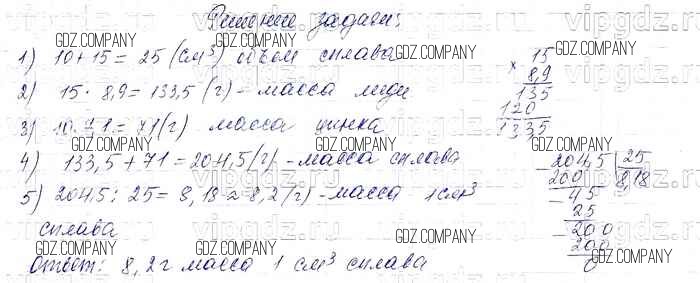 Решение задачи:
1) 10 + 15 = 25 (см³) объем сплава
2) 15 · 8,9 = 133,5 (г) – масса меди
3) 10 · 7,1 = 71 (г) масса цинка
4) 133,5 + 71 = 204,5 (г) – масса сплава
5) 204,5 : 25 = 8,18 ≈ 8,2 (г) – масса 1 см³
сплава
Ответ: 8,2 г масса 1 см³ сплава
× 15
8,9
135
120
133,5
- 204,5 | 25
200 | 8,18
- 45
25
- 200
200
0
GDZ.COMPANY
GDZ.COMPANY
GDZ.COMPANY
GDZ.COMPANY
GDZ.COMPANY
GDZ.COMPANY
GDZ.COMPANY
GDZ.COMPANY
GDZ.COMPANY
GDZ.COMPANY
GDZ.COMPANY
GDZ.COMPANY
GDZ.COMPANY
vipgdz.ru